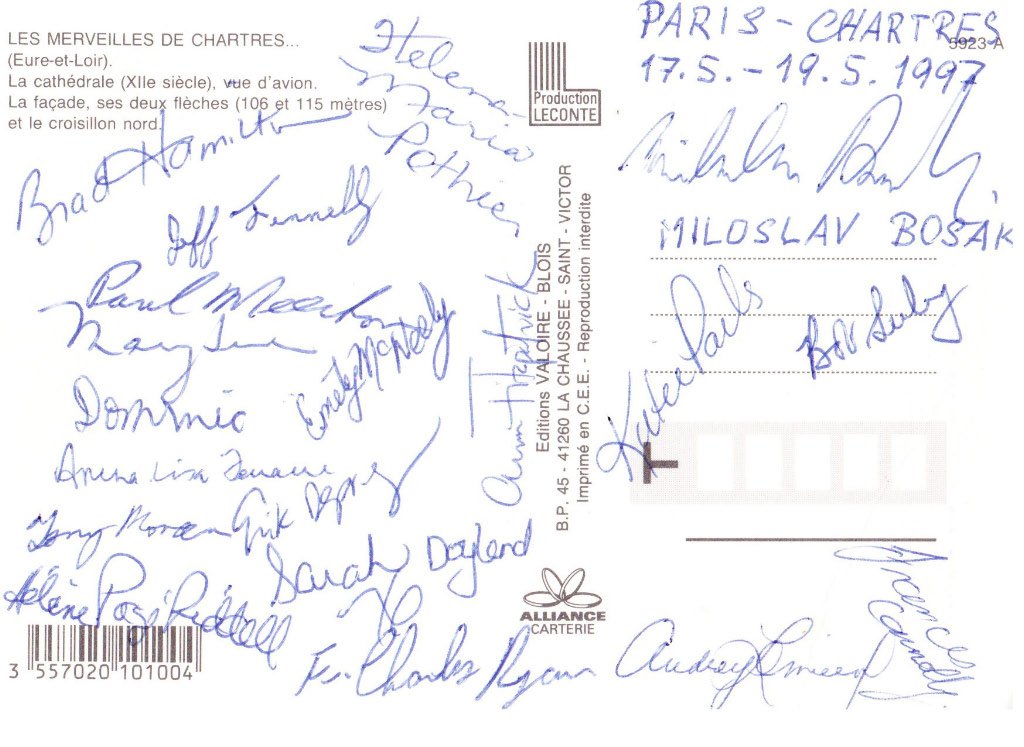 LES MERVEILLES DE CHARTRES...
(Eure-et-Loir).
La cathédrale (XIIe siècle), vue d'avion.
La façade, ses deux flèches (106 et 115 mètres)
et le croisillon nord.
Helena
Maria
Pothier
Brad Hamilton
Jeff Fennelly
Paul
Mary
Emily McNeely
Dominic
Anna Lisa
Tony Moran
Erik
Sarah Dayland
Hélène Pagé Riddell
3 557020 101004
Fr. Charles Ryan
Ann Fitzpatrick
Production
LECONTE
Editions VALOIRE - BLOIS
B.P. 45 - 41260 LA CHAUSSEE - SAINT - VICTOR
Imprimé en C.E.E. - Reproduction interdite
ALLIANCE
CARTERIE
PARIS - CHARTRES
5923-A
17.5. - 19.5. 1997
MILOSLAV BOSÁK
Katee Parls
Bob
T
Audrey
Frances
Connolly